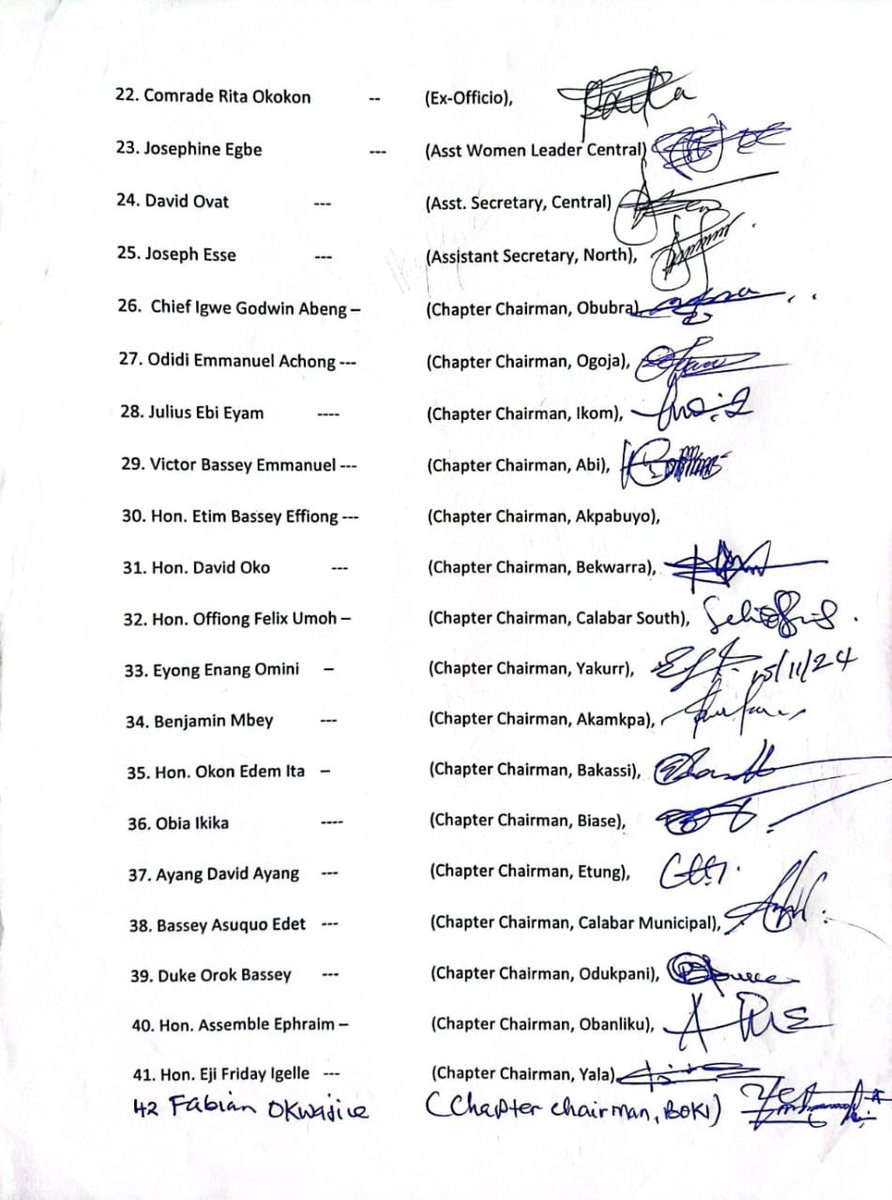 22. Comrade Rita Okokon -- (Ex-Officio),
23. Josephine Egbe --- (Asst Women Leader Central)
24. David Ovat --- (Asst. Secretary, Central)
25. Joseph Esse --- (Assistant Secretary, North),
26. Chief Igwe Godwin Abeng – (Chapter Chairman, Obubra)
27. Odidi Emmanuel Achong --- (Chapter Chairman, Ogoja),
28. Julius Ebi Eyam ---- (Chapter Chairman, Ikom),
29. Victor Bassey Emmanuel --- (Chapter Chairman, Abi),
30. Hon. Etim Bassey Effiong --- (Chapter Chairman, Akpabuyo),
31. Hon. David Oko --- (Chapter Chairman, Bekwarra),
32. Hon. Offiong Felix Umoh – (Chapter Chairman, Calabar South),
33. Eyong Enang Omini – (Chapter Chairman, Yakurr), 15/11/24
34. Benjamin Mbey --- (Chapter Chairman, Akamkpa),
35. Hon. Okon Edem Ita – (Chapter Chairman, Bakassi),
36. Obia Ikika ---- (Chapter Chairman, Biase),
37. Ayang David Ayang --- (Chapter Chairman, Etung),
38. Bassey Asuquo Edet --- (Chapter Chairman, Calabar Municipal),
39. Duke Orok Bassey --- (Chapter Chairman, Odukpani),
40. Hon. Assemble Ephraim – (Chapter Chairman, Obanliku),
41. Hon. Eji Friday Igelle --- (Chapter Chairman, Yala)
42 Fabian (Chapter chairman, BOKI)